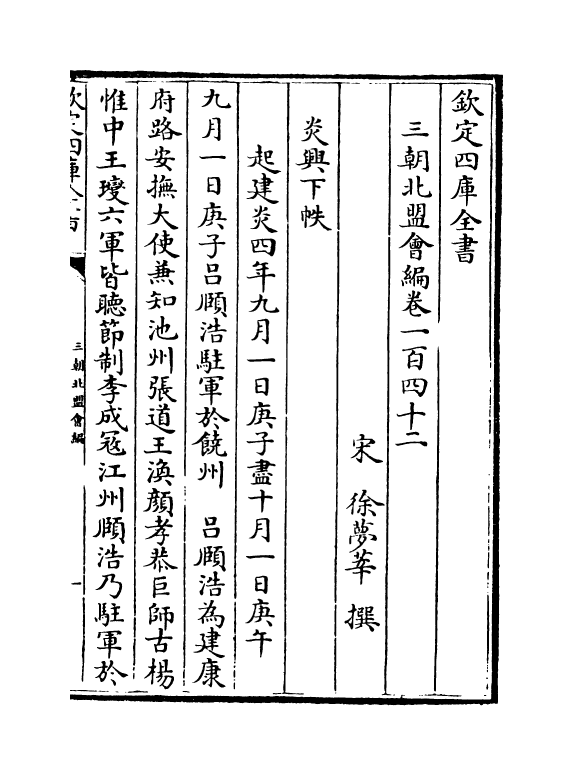 欽定四庫全書
三朝北盟會編卷一百四十二
宋 徐夢莘 撰
炎興下帙
起建炎四年九月一日庚子盡十月一日庚午
九月一日庚子吕頤浩駐軍於饒州 吕頤浩為建康
府路安撫大使兼知池州張道王渙顔孝恭巨師古楊
惟中王𤫉六軍皆聽節制李成冦江州頤浩乃駐軍於
欽定四庫全書
三朝北盟會編
一